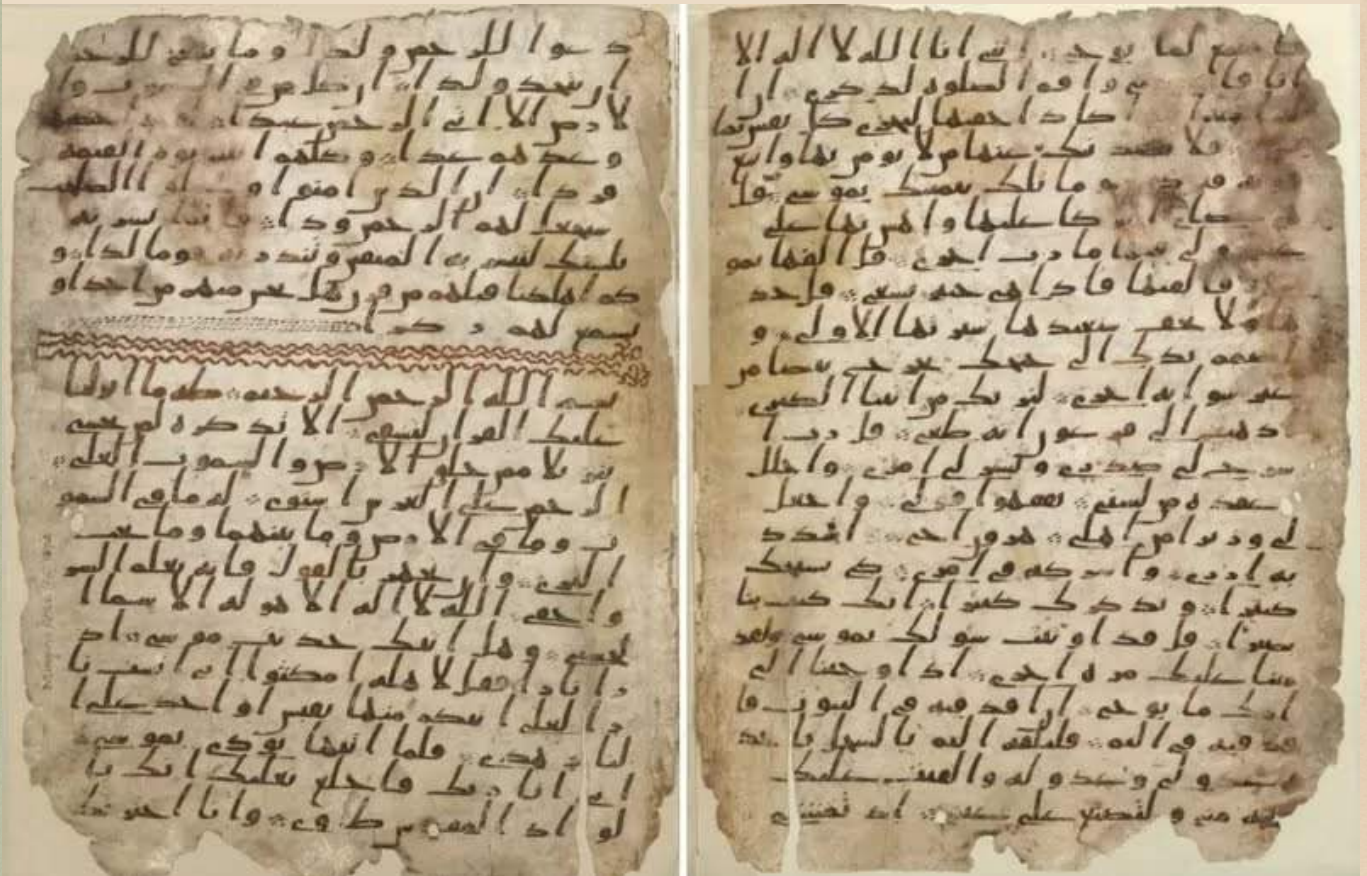 دعوا للرحمن ولدا وما ينبغي للرحمن
ان يتخذ ولدا ان كل من في السموت وا
لارض الا اتي الرحمن عبدا لقد احصيهم
وعدهم عدا وكلهم اتيه يوم القيمة
فردا ان الذين امنوا وعملوا الصلحت
سيجعل لهم الرحمن ودا فانما يسرنه
بلسنك لتبشر به المتقين وتنذر به قوما لدا و
كم اهلكنا قبلهم من قرن هل تحس منهم من احد او
تسمع لهم ركزا
بسم الله الرحمن الرحيم طه ما انزلنا
عليك القران لتشقى الا تذكرة لمن يخشى
تنزيلا ممن خلق الارض والسموت العلى
الرحمن على العرش استوى له ما في السمو
ت وما في الارض وما بينهما وما تحت
الثرى وان تجهر بالقول فانه يعلم السر
واخفى الله لا اله الا هو له الاسما ا
لحسنى وهل اتيك حديث موسى اذ
را نارا فقل لاهله امكثوا اني انست نا
را لعلي اتيكم منها بقبس او اجد على ا
لنار هدى فلما اتيها نودي يموسى
اني انا ربك فاخلع نعليك انك با
لواد المقدس طوى وانا اخترتك
فاستمع لما يوحى انني انا الله لا اله الا
انا فاعبدني واقم الصلوة لذكري ان ا
اكاد اخفيها لتجزى كل نفس بما
فلا يصدنك عنها من لا يومن بها واتبع
وما تلك بيمينك يموسى قل
عصاي اتوكا عليها واهش بها على
غنمي ولي فيها مارب اخرى قل القها يمو
فالقيها فاذا هي حية تسعى قل خذ
ها ولا تخف سنعيدها سيرتها الاولى و
اضمم يدك الى جنحك تخرج بيضا من
غير سو اية اخرى لنريك من ايتنا الكبرى
اذهب الى فرعون انه طغى قل رب ا
شرح لي صدري ويسر لي امري واحلل
عقدة من لسني يفقهوا قولي واجعل
لي وزيرا من اهلي هرون اخي اشدد
به ازري واشركه في امري كي نسبحك
كثيرا ونذكرك كثيرا انك كنت بنا
بصيرا قل قد اوتيت سولك يموسى ولقد
مننا عليك مرة اخرى اذ اوحينا الى
امك ما يوحى ان اقذفيه في التبوت فا
قذفيه في اليم فليلقه اليم بالسحل ياخذه
عدو لي وعدو له والقيت عليك
محبة مني ولتصنع على عيني اذ تمشي